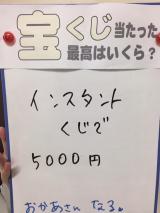 宝くじ当たった
最高はいくら？
インスタント
くじで
5000円
おかあさん なる。